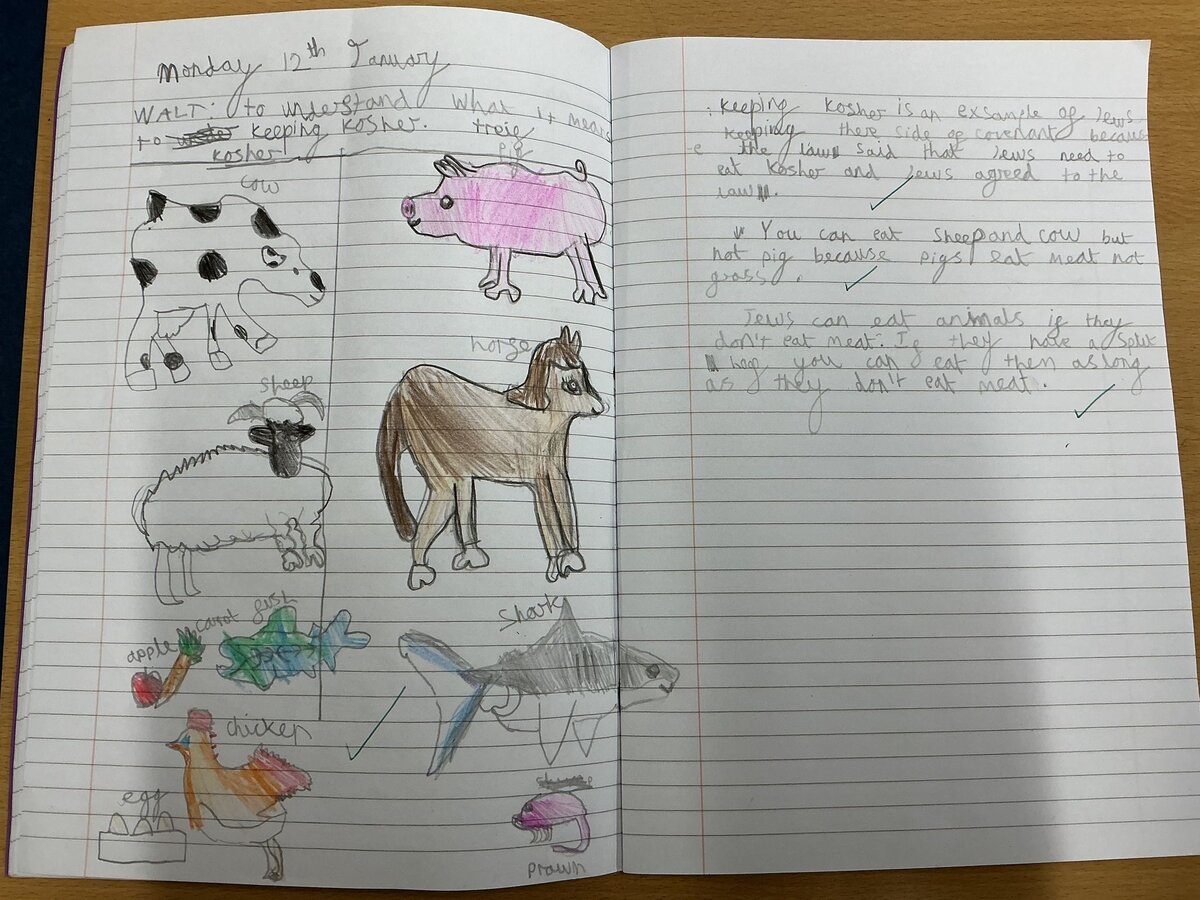 Monday 12th January
WALT: to understand what it means
to keeping kosher.
kosher
treif
cow
pig
sheep
horse
apple
carot
fish
shark
chicken
egg
prawn
keeping kosher is an exsample of Jews
keeping there side of covenant becaus
-e the law said that Jews need to
eat kosher and Jews agreed to the
law.
You can eat sheep and cow but
not pig because pigs eat meat not
grass.
Jews can eat animals if they
don't eat meat. If they have a split
hof you can eat them as long
as they don't eat meat.